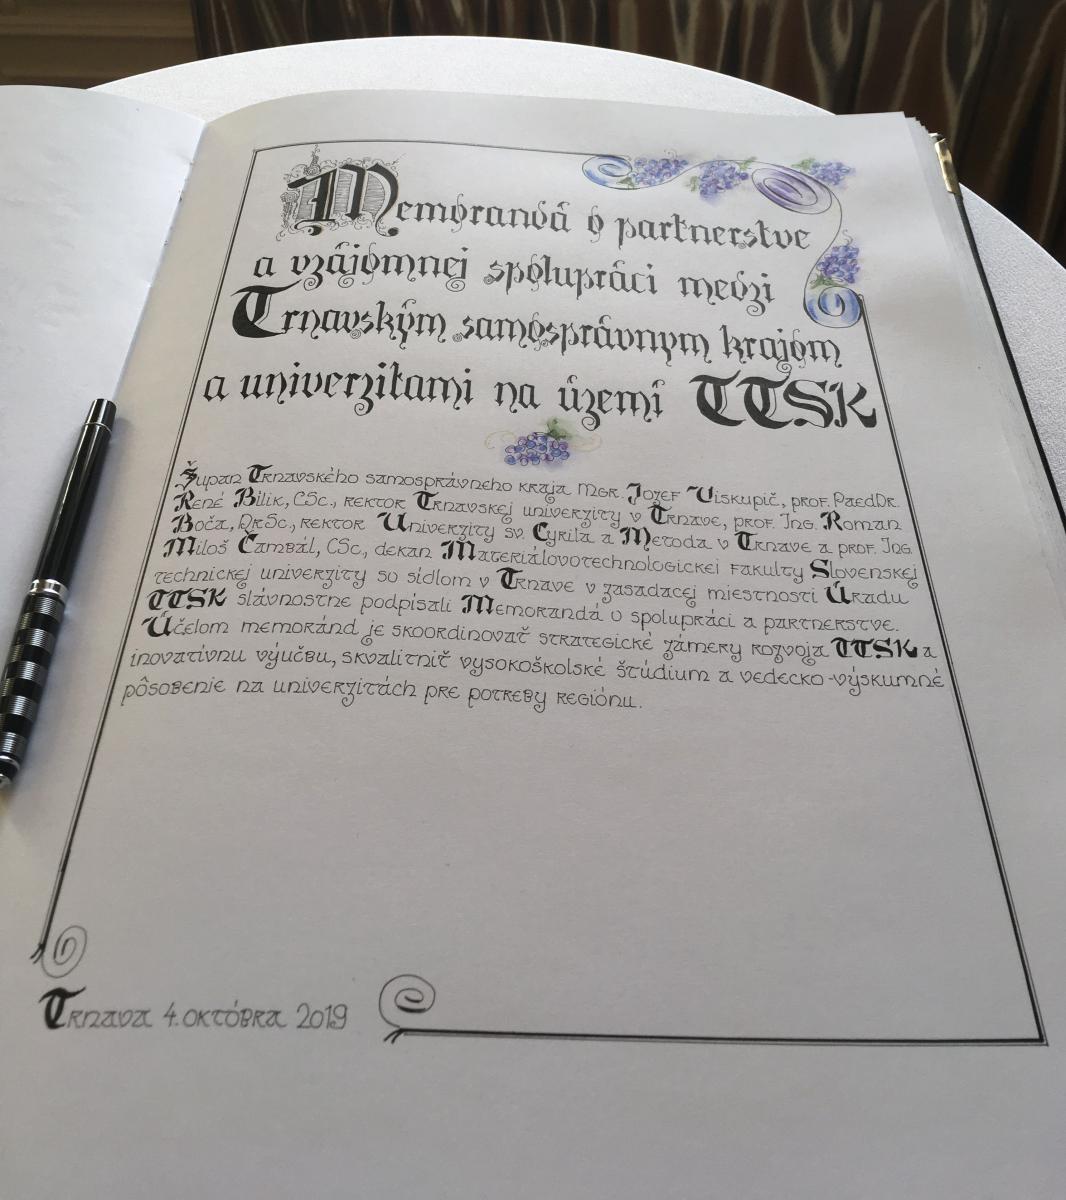 Memorandá o partnerstve
a vzájomnej spolupráci medzi
Trnavským samosprávnym krajom
a univerzitami na území TTSK
Župan Trnavského samosprávneho kraja Mgr. Jozef Viskupič, prof. PaedDr.
René Bílik, CSc., rektor Trnavskej univerzity v Trnave, prof. Ing. Roman
Boča, DrSc., rektor Univerzity sv. Cyrila a Metoda v Trnave a prof. Ing.
Miloš Čambál, CSc., dekan Materiálovotechnologickej fakulty Slovenskej
technickej univerzity so sídlom v Trnave v zasadacej miestnosti Úradu
TTSK slávnostne podpísali Memorandá o spolupráci a partnerstve.
Účelom memoránd je skoordinovať strategické zámery rozvoja TTSK a
inovatívnu výučbu, skvalitniť vysokoškolské štúdium a vedecko-výskumné
pôsobenie na univerzitách pre potreby regiónu.
Trnava 4. októbra 2019